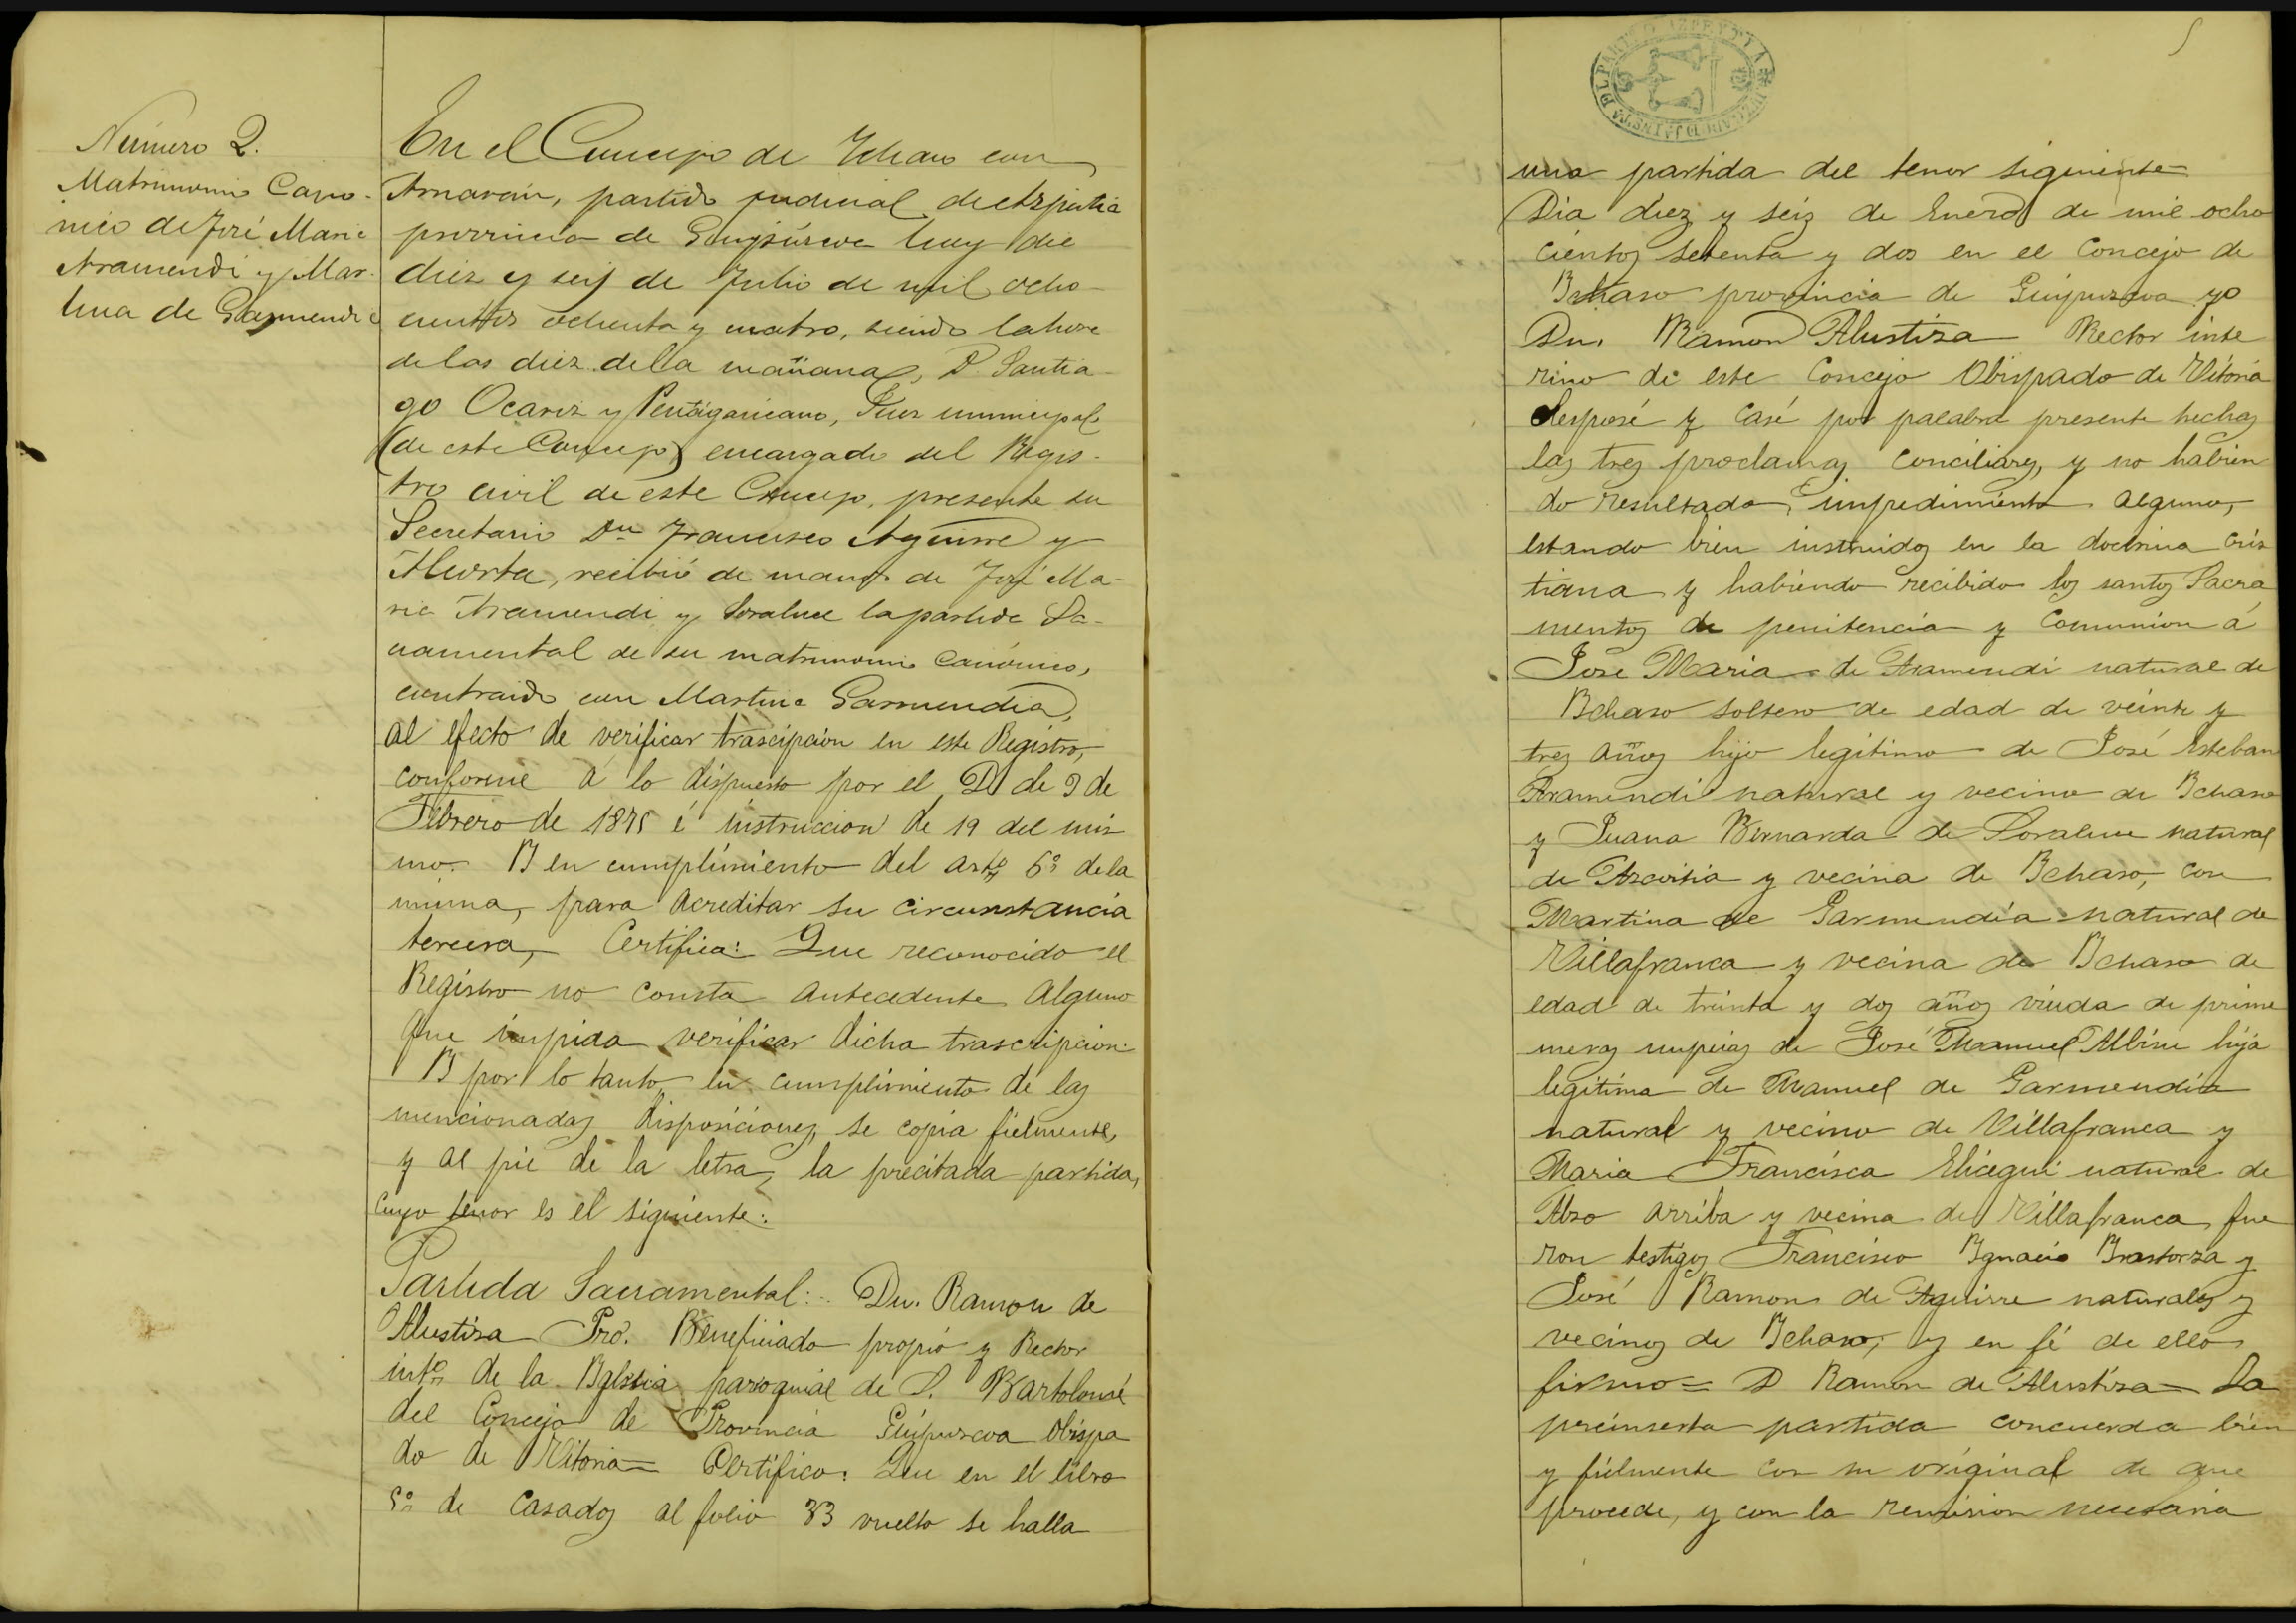 Número 2.
Matrimonio Cano-
nico de José Maria
Aramendi y Mar-
tina de Garmendia
En el Concejo de Ichaso con
Arnaran, partido judicial de Azpeitia
provincia de Guipúzcoa hoy dia
diez y seis de Julio de mil ocho-
cientos ochenta y cuatro, siendo la hora
de las diez de la mañana, D. Santia-
go Ocariz y, Juez municipal
(de este Concejo) encargado del Regis-
tro civil de este Concejo, presente su
Secretario Dn Francisco Aguirre y
Huerta, recibió de manos de José Ma-
ria Aramendi y Soraluce la partida Sa-
cramental de su matrimonio canónico,
contraido con Martina Garmendia,
al efecto de verificar trascipcion en este Registro,
conforme á lo dispuesto por el D de 9 de
Febrero de 1875 é instruccion de 19 del mis
mo. Y en cumplimiento del arto 6º de la
misma, para acreditar su circunstancia
tercera, Certifica: Que reconocido el
Registro no consta antecedente alguno
que impida verificar dicha trascripcion.
Y por lo tanto en cumplimiento de las
mencionadas disposiciones, se copia fielmente,
y al pie de la letra, la precitada partida,
cuyo tenor es el siguiente:
Partida Sacramental: Dn. Ramon de
Alustiza Pro. Beneficiado propio y Rector
into de la Yglesia paroquial de S. Bartolomé
del Concejo de Provincia Guipuzcoa obispa
do de Vitoria = Certifico: Que en el libro
5º de Casados al folio 33 vuelto se halla
5
JUZGADO DE INSTA DEL PARTIDO AZPEITIA
una partida del tenor siguiente
Dia diez y seiz de Enero de mil ocho
cientos setenta y dos en el Concejo de
Ychaso provincia de Guipuzcoa yo
Dn. Ramon Alustiza Rector inte
rino de este Concejo Obispado de Vitoria
desposé y casé por palabra presente hechas
las tres proclamas conciliares, y no habien
do resultado impedimento alguno,
estando bien instruidos en la doctrina cris
tiana y habiendo recibido los santos Sacra
mentos de penitencia y Comunion á
José Maria de Aramendi natural de
Ychaso soltero de edad de veinte y
tres años hijo legitimo de José Esteban
Aramendi natural y vecino de Ychaso
y Juana Bernarda de Soraluce natural
de Azcoitia y vecina de Ychaso, con
Martina de Garmendia natural de
Villafranca y vecina de Ychaso de
edad de treinta y dos años viuda de prime
meras nupcias de José Manuel Albisu hija
legitima de Manuel de Garmendia
natural y vecino de Villafranca y
Maria Francisca Elicegui natural de
Alzo arriba y vecina de Villafranca, fue
ron testigos Francisco Ygnacio Yrastorza y
José Ramon de Aguirre naturales y
vecinos de Ychaso, y en fé de ello
firmo = D Ramon de Alustiza = La
preinserta partida concuerda bien
y fielmente con su original de que
procede, y con la remision necesaria